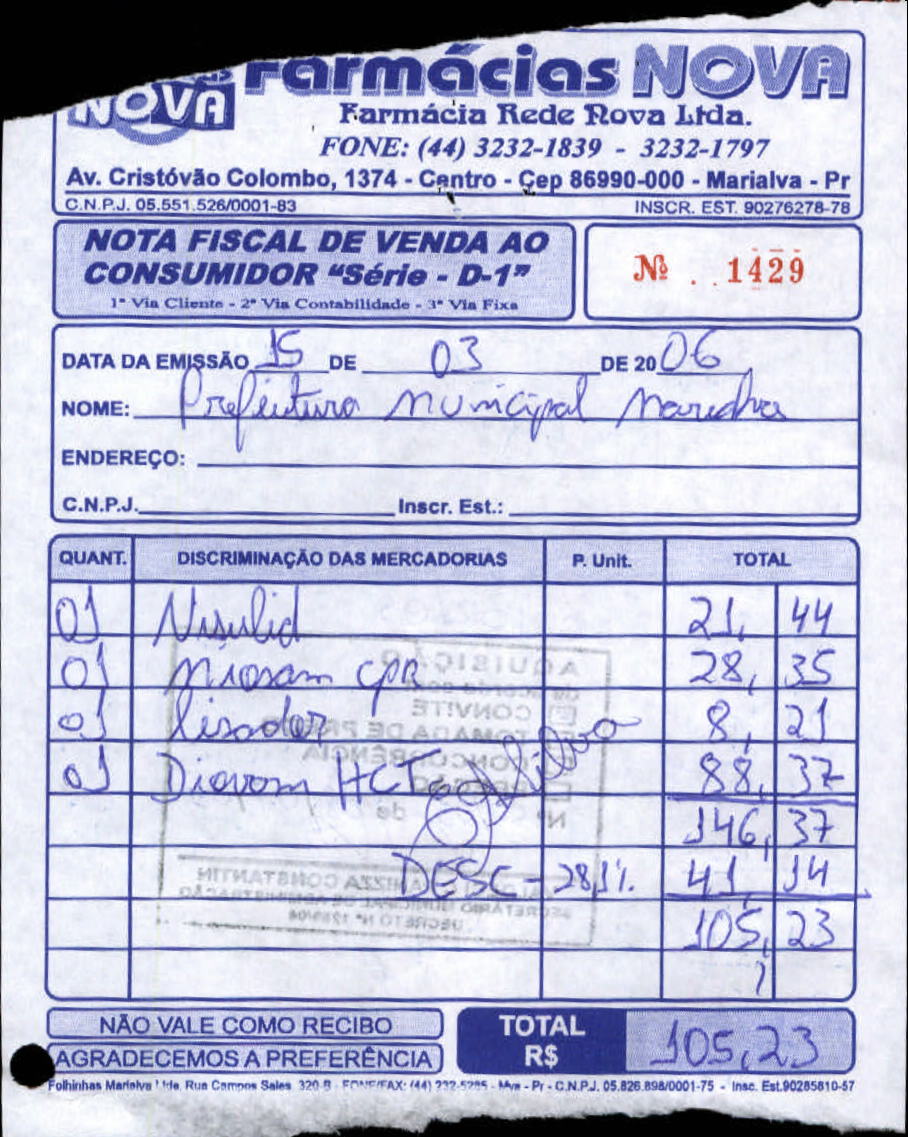 Farmácias NOVA
NOVA
Farmácia Rede Nova Ltda.
FONE: (44) 3232-1839 - 3232-1797
Av. Cristóvão Colombo, 1374 - Centro - Cep 86990-000 - Marialva - Pr
C.N.P.J. 05.551.526/0001-83 INSCR. EST. 90276278-78
NOTA FISCAL DE VENDA AO
CONSUMIDOR "Série - D-1"
1ª Via Cliente - 2ª Via Contabilidade - 3ª Via Fixa
Nº 1429
DATA DA EMISSÃO 15 DE 03 DE 2006
NOME: Prefeitura Municipal Marialva
ENDEREÇO:
C.N.P.J. Inscr. Est.:
QUANT. DISCRIMINAÇÃO DAS MERCADORIAS P. Unit. TOTAL
01 Nisulid 21,44
01 Miosan CPR 28,35
01 Lisador 8,21
01 Diovan HCT 88,37
146,37
DESC - 28,1% 41,14
105,23
AQUISIÇÃO
de acordo com
CONVITE
TOMADA DE PREÇO
CONCORRÊNCIA
Nº de
CONSTANTIN
SECRETÁRIO MUNICIPAL DE ADMINISTRAÇÃO
DECRETO Nº
NÃO VALE COMO RECIBO
AGRADECEMOS A PREFERÊNCIA
TOTAL
R$ 105,23
Folhinhas Marialva Ltda. Rua Campos Sales, 320-B - FONE/FAX: (44) 232-5285 - Mva - Pr - C.N.P.J. 05.826.898/0001-75 - Insc. Est.90285810-57